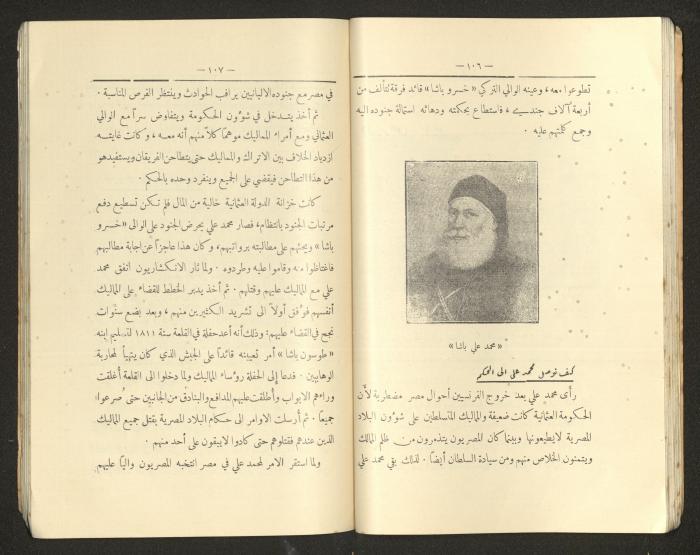 — ١٠٦ —
تطوعوا معه، وعينه الوالي التركي «خسرو باشا» قائد فرقة تتألف من
أربعة آلاف جندي، فاستطاع بحكمته ودهائه استمالة جنوده اليه
وجمع كلمتهم عليه.
«محمد علي باشا»
كيف توصل محمد علي الى الحكم
رأى محمد علي بعد خروج الفرنسيين أحوال مصر مضطربة لأن
الحكومة العثمانية كانت ضعيفة والمماليك المتسلطين على شؤون البلاد
المصرية لايطيعونها وبينما كان المصريون يتذمرون من ظلم المماليك
ويتمنون الخلاص منهم ومن سيادة السلطان أيضاً. لذلك بقي محمد علي
— ١٠٧ —
في مصر مع جنوده الالبانيين يراقب الحوادث وينتظر الفرص المناسبة.
ثم أخذ يتدخل في شؤون الحكومة ويتفاوض سراً مع الوالي
العثماني ومع أمراء المماليك موهماً كلاً منهم أنه معه، وكانت غايته
ازدياد الخلاف بين الاتراك والمماليك حتى يتطاحن الفريقان ويستفيد هو
من هذا التطاحن فيقضي على الجميع وينفرد وحده بالحكم.
كانت خزانة الدولة العثمانية خالية من المال فلم تكن تستطيع دفع
مرتبات الجنود بالانتظام، فصار محمد علي يحرض الجنود على الوالى «خسرو
باشا» ويحثهم على مطالبته برواتبهم، وكان هذا عاجزاً عن اجابة مطالبهم
فاغتاظوا منه وقاموا عليه وطردوه. ولما ثار الانكشاريون اتفق محمد
علي مع المماليك عليهم وقتلهم. ثم أخذ يدبر الخطط للقضاء على المماليك
أنفسهم فوفق أولاً الى تشريد الكثيرين منهم، وبعد بضع سنوات
نجح في القضاء عليهم: وذلك أنه أعد حفلة في القلعة سنة ١٨١١ لتسليم ابنه
«طوسون باشا» أمر تعيينه قائداً على الجيش الذي كان يتهيأ لمحاربة
الوهابيين. فدعا إلى الحفلة رؤساء المماليك ولما دخلوا الى القلعة أُغلقت
وراءهم الابواب وأُطلقت عليهم المدافع والبنادق من الجانبين حتى صُرعوا
جميعاً. ثم أُرسلت الاوامر الى حكام البلاد المصرية بقتل جميع المماليك
الذين عندهم فقتلوهم حتى كادوا لايبقون على أحد منهم.
ولما استقر الامر لمحمد علي في مصر انتخبه المصريون والياً عليهم